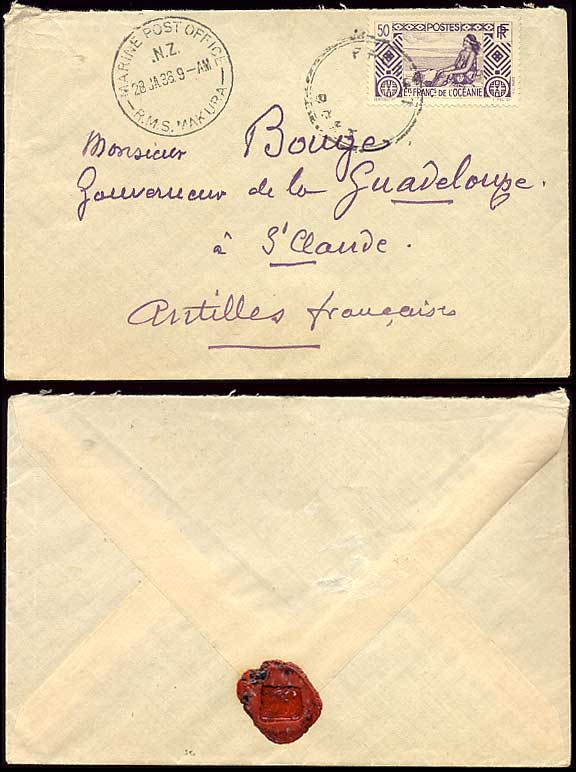 MARINE POST OFFICE
.N.Z.
28 JA 36.9-AM
R.M.S. MAKURA
50 POSTES RF
ÉTS FRANÇS DE L'OCÉANIE
Monsieur Bouge.
Gouverneur de la Guadeloupe.
à St Claude.
Antilles françaises